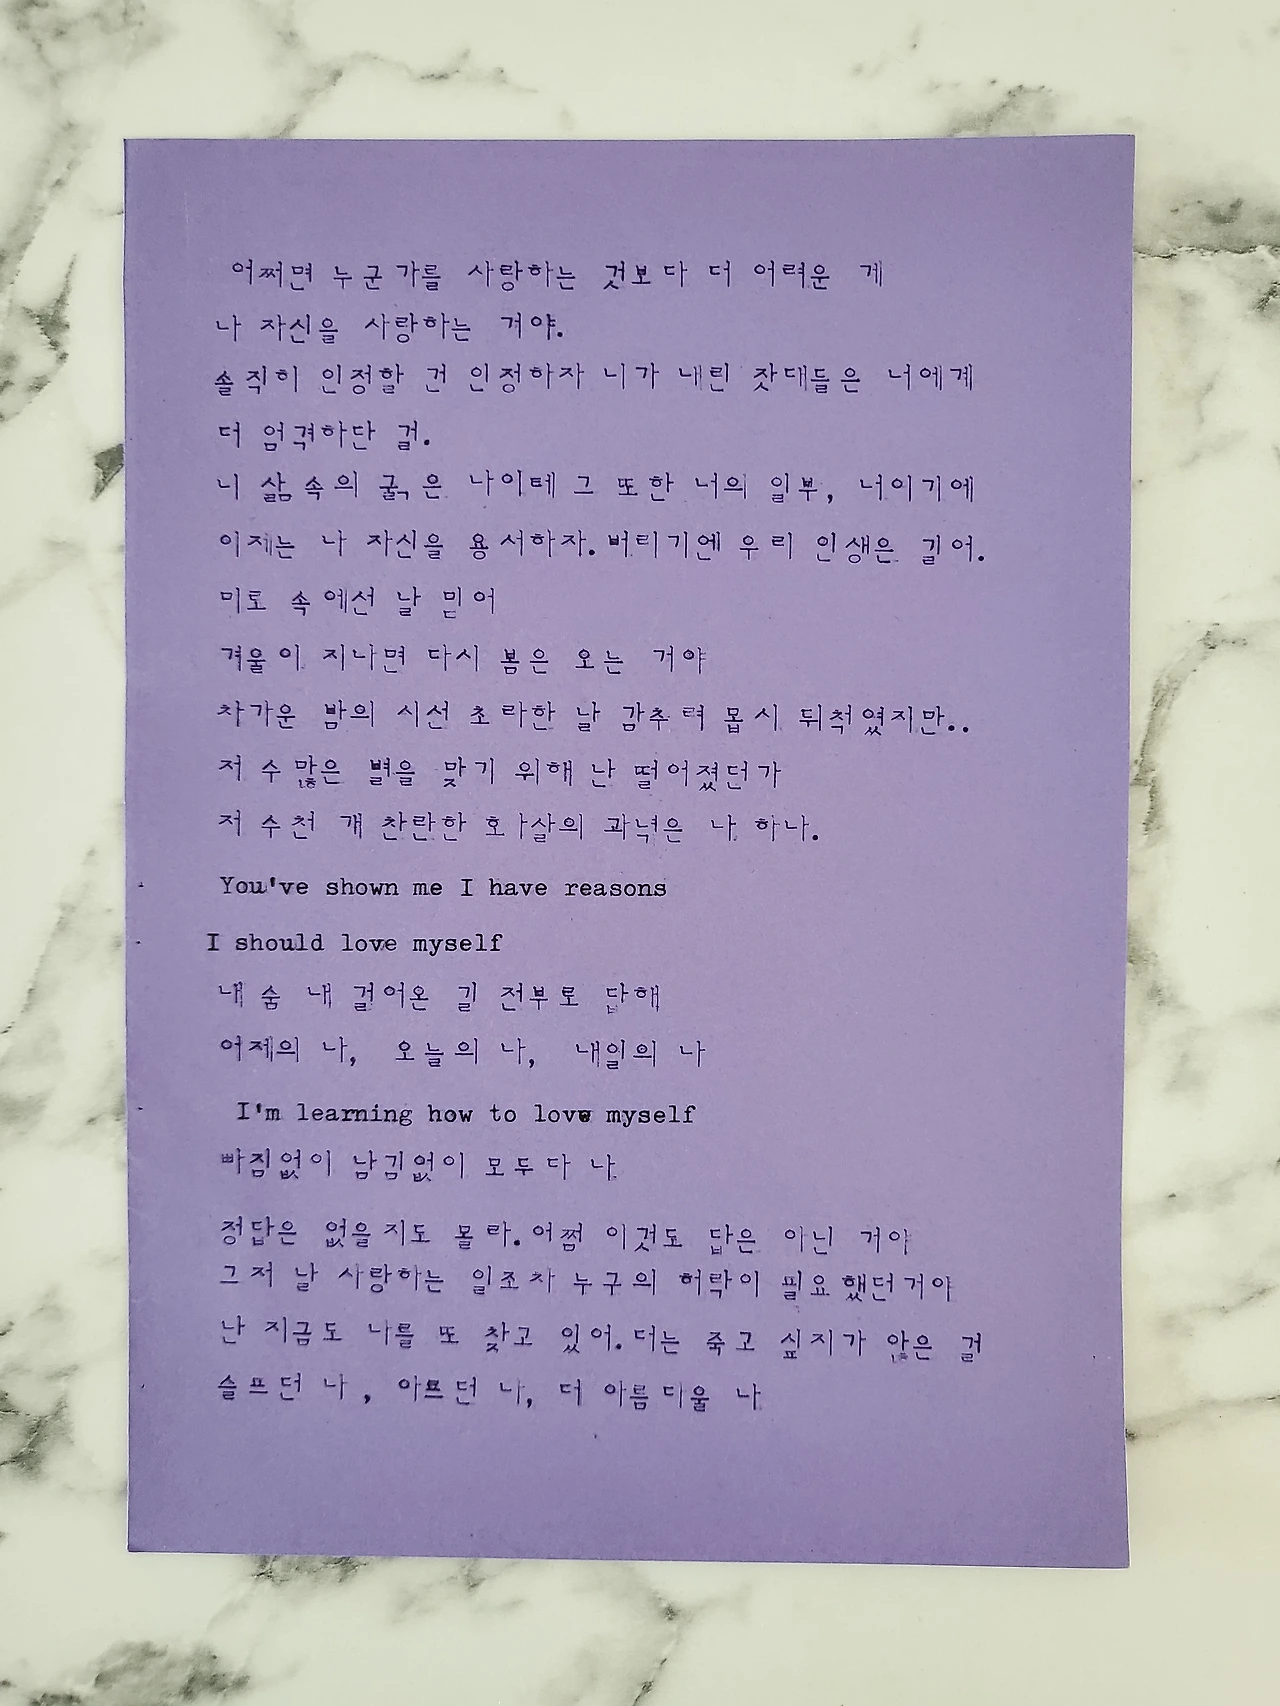 어쩌면 누군가를 사랑하는 것보다 더 어려운 게
나 자신을 사랑하는 거야.
솔직히 인정할 건 인정하자 니가 내린 잣대들은 너에게
더 엄격하단 걸.
니 삶 속의 굵은 나이테 그 또한 너의 일부, 너이기에
이제는 나 자신을 용서하자. 버리기엔 우리 인생은 길어.
미로 속에선 날 믿어
겨울이 지나면 다시 봄은 오는 거야
차가운 밤의 시선 초라한 날 감추려 몹시 뒤척였지만..
저 수많은 별을 맞기 위해 난 떨어졌던가
저 수천 개 찬란한 화살의 과녁은 나 하나.
You've shown me I have reasons
I should love myself
내 숨 내 걸어온 길 전부로 답해
어제의 나, 오늘의 나, 내일의 나
I'm learning how to love myself
빠짐없이 남김없이 모두 다 나
정답은 없을지도 몰라. 어쩜 이것도 답은 아닌 거야
그저 날 사랑하는 일조차 누구의 허락이 필요했던거야
난 지금도 나를 또 찾고 있어. 더는 죽고 싶지가 않은 걸
슬프던 나, 아프던 나, 더 아름다울 나